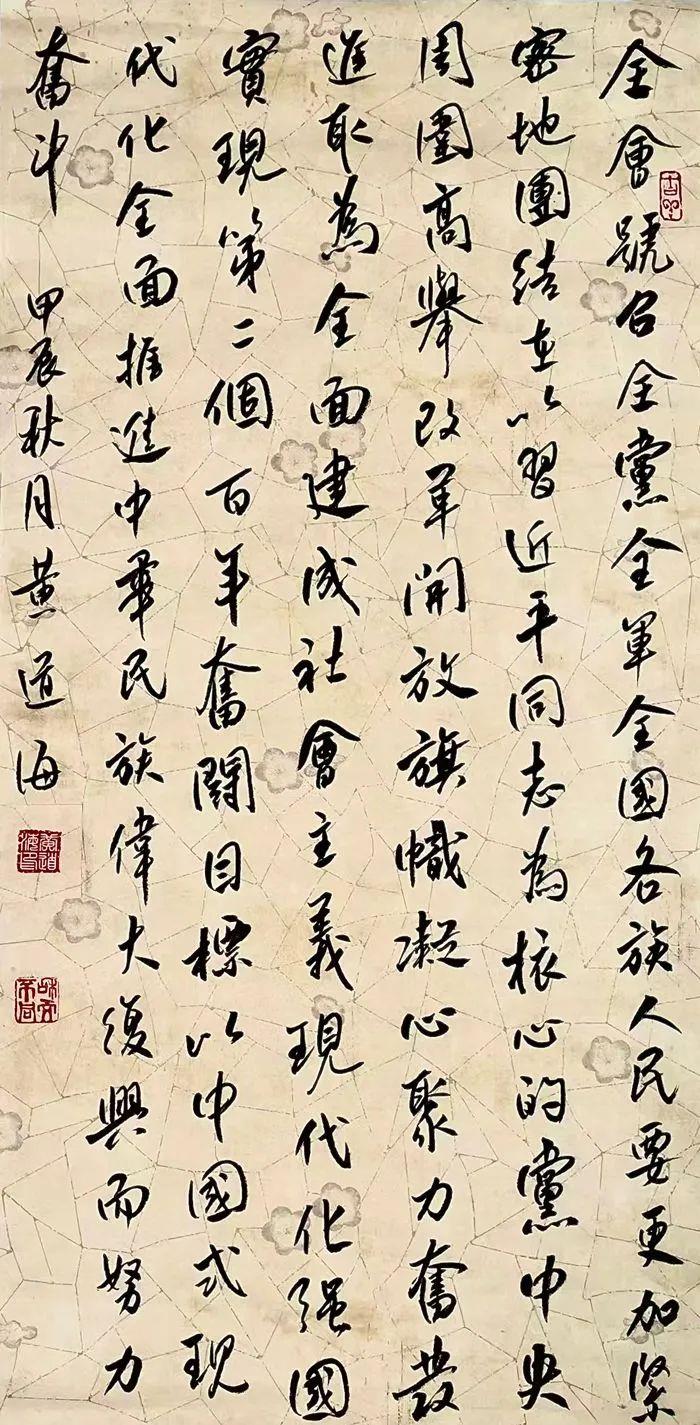 全會號召全黨全軍全國各族人民要更加緊
密地團結在以習近平同志為核心的黨中央
周圍高舉改革開放旗幟凝心聚力奮發
進取為全面建成社會主義現代化强國
實現第二個百年奮鬪目標以中國式現
代化全面推進中華民族偉大復興而努力
奮斗 甲辰秋月黄道海